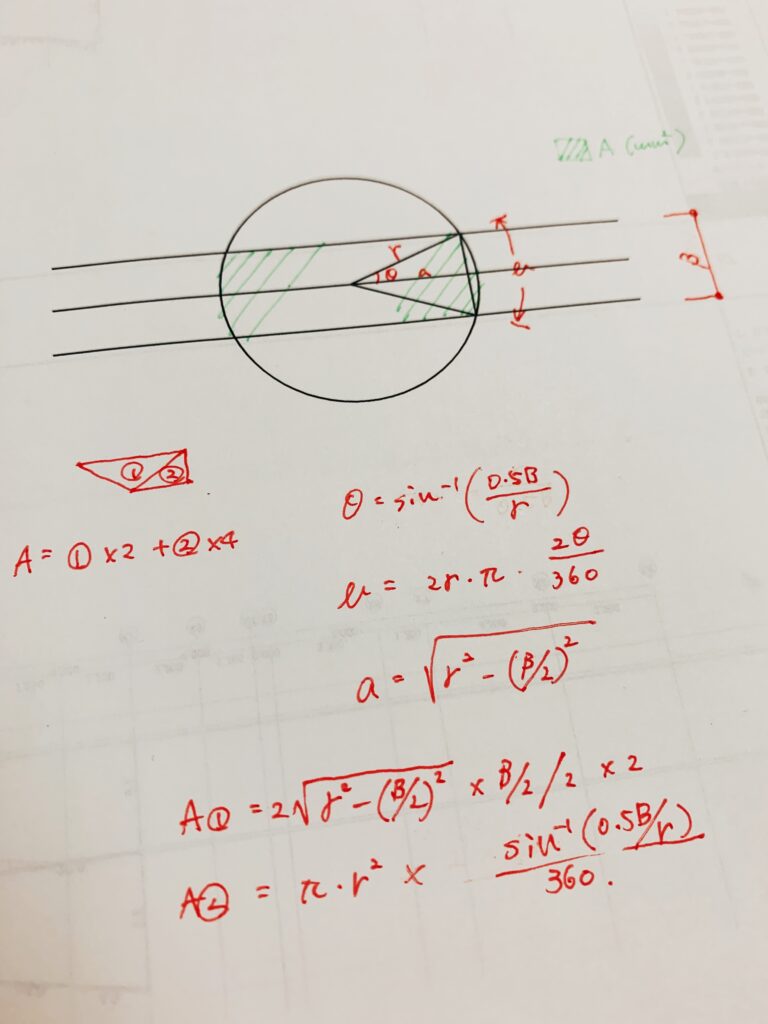 A (mm²)
r
θ a
B
① ②
A = ① ×2 + ② ×4
θ = sin⁻¹ (0.5B/r)
= 2r・π・2θ/360
a = √(r² - (B/2)²)
A① = 2√(r² - (B/2)²) × B/2/2 × 2
A② = π・r² × sin⁻¹(0.5B/r)/360.